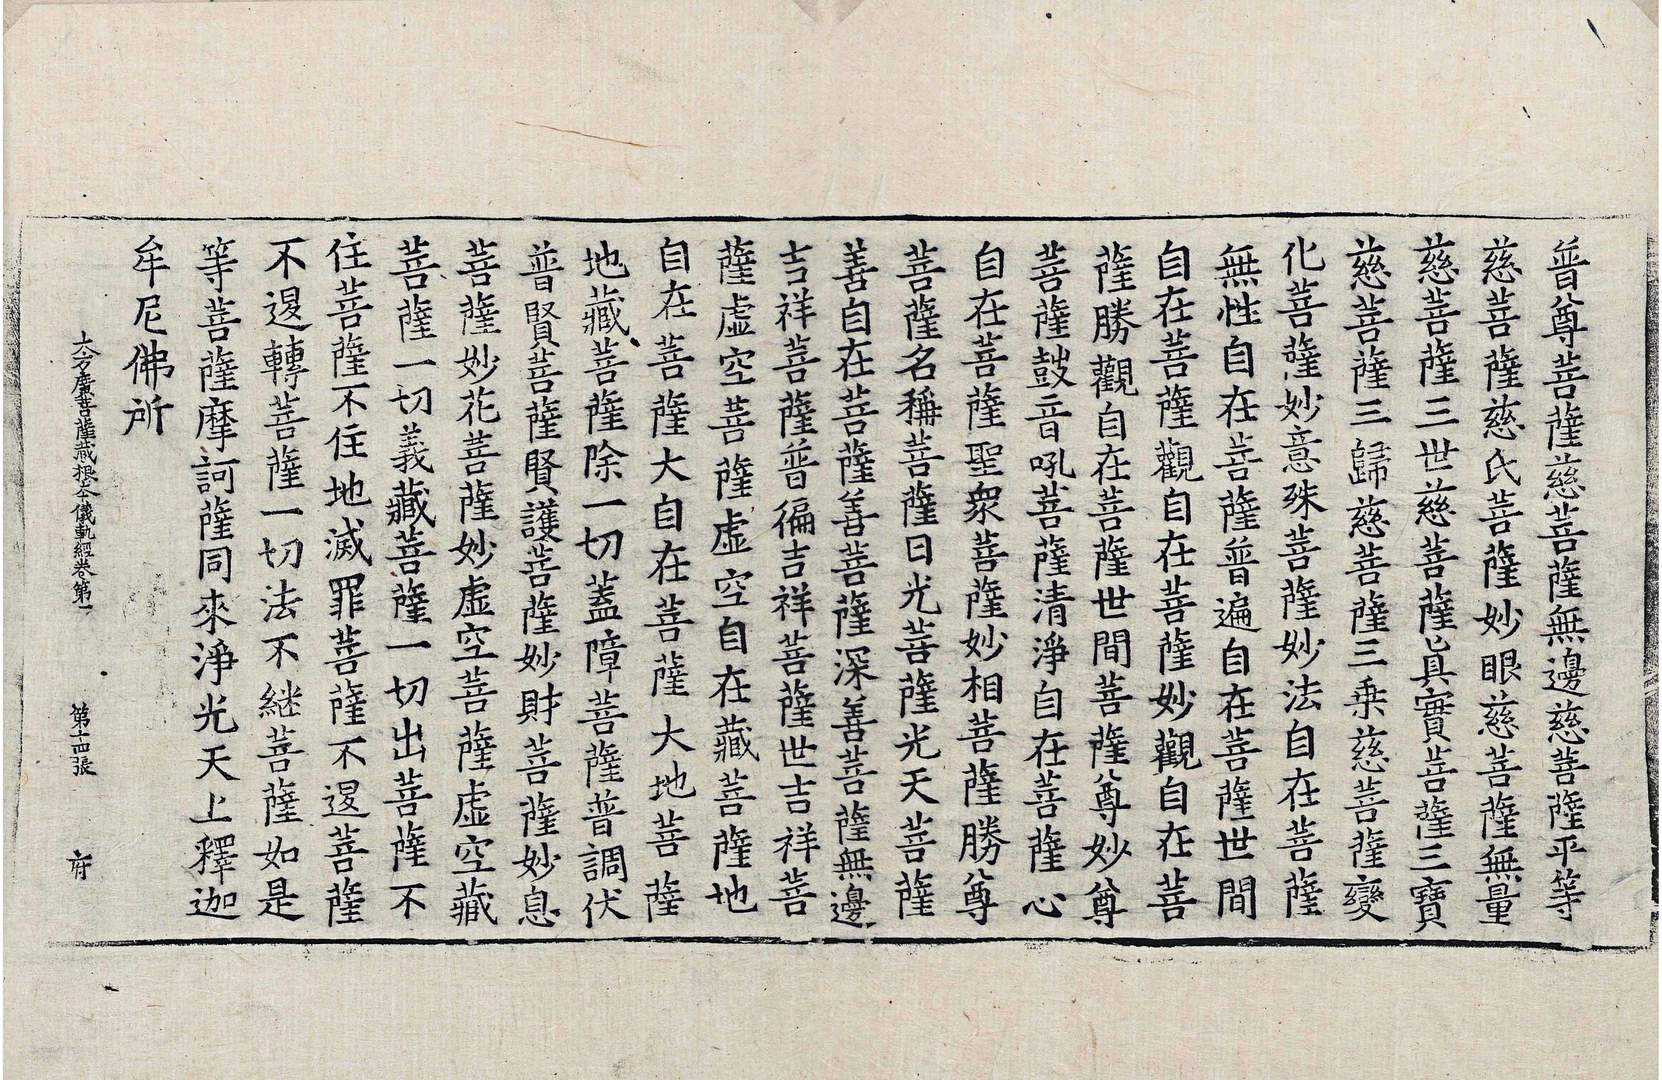 普尊菩薩慈菩薩無邊慈菩薩平等
慈菩薩慈氏菩薩妙眼慈菩薩無量
慈菩薩三世慈菩薩真實菩薩三寶
慈菩薩三歸慈菩薩三乘慈菩薩變
化菩薩妙意殊菩薩妙法自在菩薩
無性自在菩薩普遍自在菩薩世間
自在菩薩觀自在菩薩妙觀自在菩
薩勝觀自在菩薩世間菩薩尊妙尊
菩薩鼓音吼菩薩清淨自在菩薩心
自在菩薩聖衆菩薩妙相菩薩勝尊
菩薩名稱菩薩日光菩薩光天菩薩
善自在菩薩善菩薩深善菩薩無邊
吉祥菩薩普徧吉祥菩薩世吉祥菩
薩虛空菩薩虛空自在藏菩薩地
自在菩薩大自在菩薩大地菩薩
地藏菩薩除一切蓋障菩薩普調伏
普賢菩薩賢護菩薩妙財菩薩妙息
菩薩妙花菩薩妙虛空菩薩虛空藏
菩薩一切義藏菩薩一切出菩薩不
住菩薩不住地滅罪菩薩不退菩薩
不退轉菩薩一切法不継菩薩如是
等菩薩摩訶薩同來淨光天上釋迦
牟尼佛所
大方廣菩薩藏根本儀軌經卷第一 第十四張 府